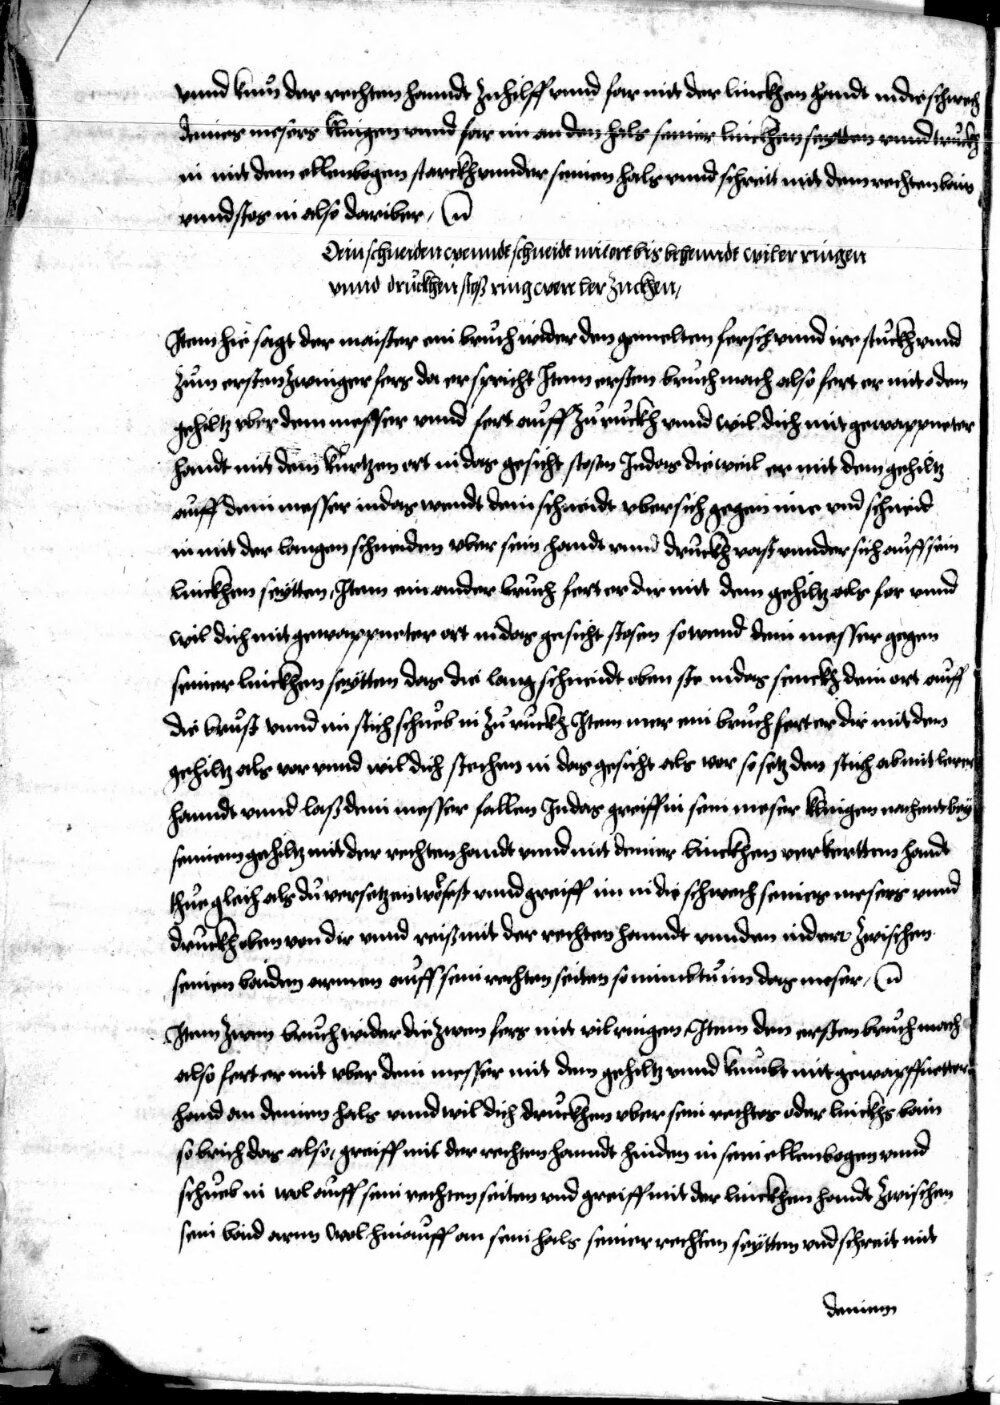 vnnd kum der rechten hanndt zu hilff vnnd far mit der linckhen handt in die schwech
deines mesers klingen vnnd far im an den hals seiner linckhen seytten vnnd truckh
in mit dem ellenbogen starckh vnnder seinen hals vnnd schreit mit dem rechten bain
vnnd stos in also dariber
Dein schneiden wenndt schneidt mit ort bis behenndt wil er ringen
vnnd druckhen stoß ring were ver zuckhen
Item hie sagt der maister ein bruch wider den gemelten fersch vnnd ire stuckh vnnd
zum ersten zwaniger fers da er spricht Item ersten bruch mach also fert er mit dem
gehiltz vber dein messer vnnd fert auff zu ruckh vnnd wil dich mit gewappneter
handt mit dem kurtzen ort in das gesicht stosen Indas die weil er mit dem gehiltz
auff deim messer indas wendt dein schneidt vbersich gegen ime vnd schneid
in mit der langen schneiden vber sein handt vnnd druckh vast vnnder sich auff sein
linckhen seytten, Item ein ander bruch fert er dir mit dem gehiltz als for vnnd
wil dich mit gewappneter ort in das gesicht stosen so wend dein messer gegen
seiner linckhen seytten das die lang schneidt oben ste indas senckh dein ort auff
die brust vnnd im stich schueb in zu ruckh Item mer ein bruch fert er dir mit dem
gehiltz als vor vnnd wil dich stechen in das gesicht als vor so setz den stich ab mit lerer
hanndt vnnd laß dein messer fallen Indas greiff in sein meser klingen nachent bey
seinem gehiltz mit der rechten handt vnnd mit deiner linckhen verkerttem handt
thue gleich als du versetzen wolest vnnd greiff im in die schwech seines mesers vnnd
druckh oben von dir vnnd reiß mit der rechten hanndt vnnden zwischen
seinen baiden armen auff sein rechten seiten so nimbtu im das meser
Item zwen bruch wider die zwen fers mit vil ringen Item den ersten bruch mach
also fert er mit vber dein messer mit dem gehiltz vnnd kumbt mit gewappnetter
hand an deinen hals vnnd wil dich druckhen vber sein rechtes oder linckhs bain
so brich das also, greiff mit der rechten hanndt hinden in sein ellenbogen vnnd
schueb in wol auff sein rechten seiten vnd greiff mit der linckhen handt zwischen
sein baid arm wol hinauff an sein hals seiner rechten seytten vnd schreit mit
deinem